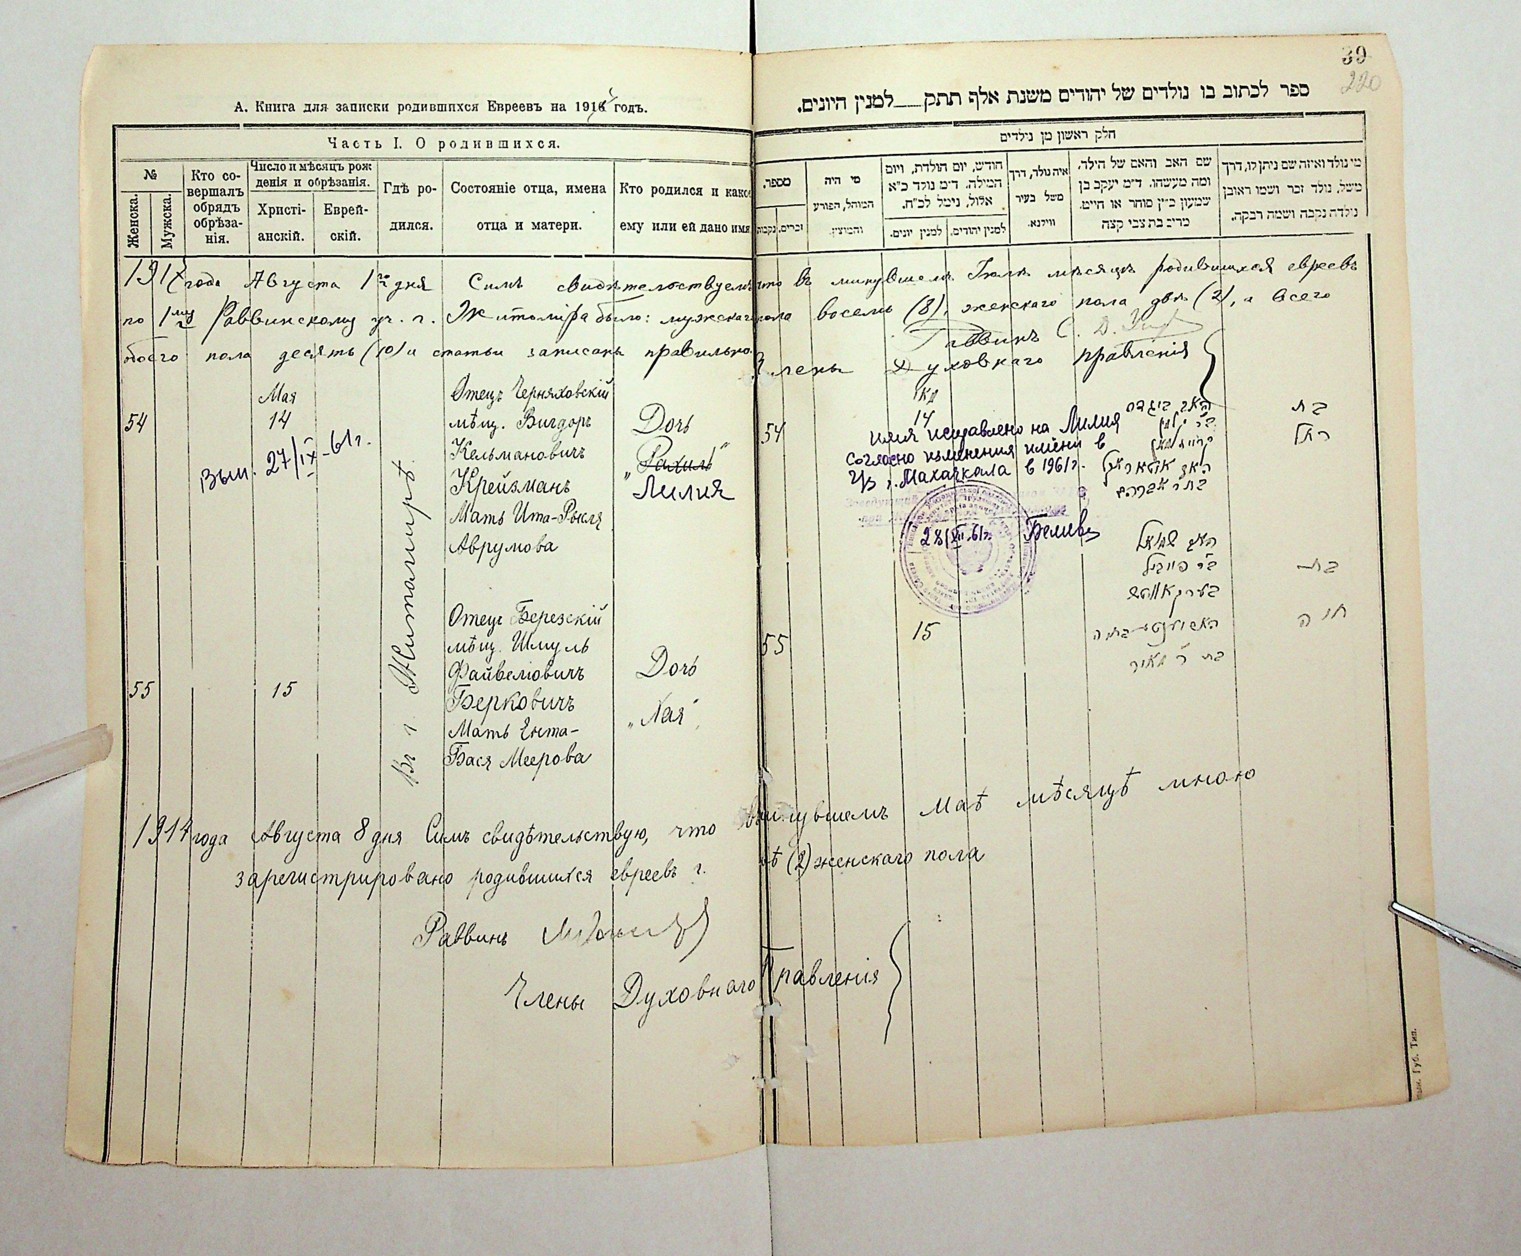 39
220
А. Книга для записки родившихся Евреевъ на 1914 годъ.
ספר לכתוב בו נולדים של יהודים משנת אלף תתק למנין היונים.
Часть I. О родившихся.
חלק ראשון מן נולדים
№
Женска.
Мужска.
Кто совершалъ обрядъ обрѣзанія.
Число и мѣсяцъ рожденія и обрѣзанія.
Христіанскій.
Еврейскій.
Гдѣ родился.
Состояніе отца, имена отца и матери.
Кто родился и какое ему или ей дано имя
מספר.
זכרים.
נקבות
מי היה המוהל, הפורע והמוצץ.
חודש, יום הולדת, ויום המילה. ד״מ נולד כ״א אלול, נימל לכ״ח.
למנין יונים.
למנין יהודים.
איה נולד, דרך משל בעיר ווילנא.
שם האב והאם של הילד, ומה מעשהו. ד״מ יעקב בן שמעון כ״ץ סוחר או חייט.
מי נולד ואיזה שם ניתן לו, דרך משל, נולד זכר ושמו ראובן נולדה נקבה ושמה רבקה.
1914 года Августа 1го дня Симъ свидѣтельствуемъ что въ минувшемъ Іюлѣ мѣсяцѣ родившихся евреевъ
по 1му Раввинскому уч. г. Житоміра было: мужскаго пола восемь (8), женскаго пола двѣ (2), а всего
обоего пола десять (10) и статьи записаны правильно.
Раввинъ
Члены Духовнаго Правленія
Въ г. Житомирѣ
54
Мая
14
Отецъ Черняховскій
мѣщ. Вигдоръ
Кельмановичъ
Крейзманъ
Мать Ита-Рысля
Аврумова
Дочь
„Рахиль“
Лилия
Вып. 27/IX-61г.
54
14
имя исправлено на Лилия
согласно изменения имени в
г. Махачкала в 1961г.
בת
רחל
55
15
Отецъ Березскій
мѣщ. Шмуль
Файвеловичъ
Берковичъ
Мать Ента-
Бася Меерова
Дочь
„Хая“
55
15
בת
חיה
1914 года Августа 8 дня Симъ свидѣтельствую, что въ минувшемъ Маѣ мѣсяцѣ мною
зарегистрировано родившихся евреевъ г. (2) женскаго пола
Раввинъ
Члены Духовнаго Правленія